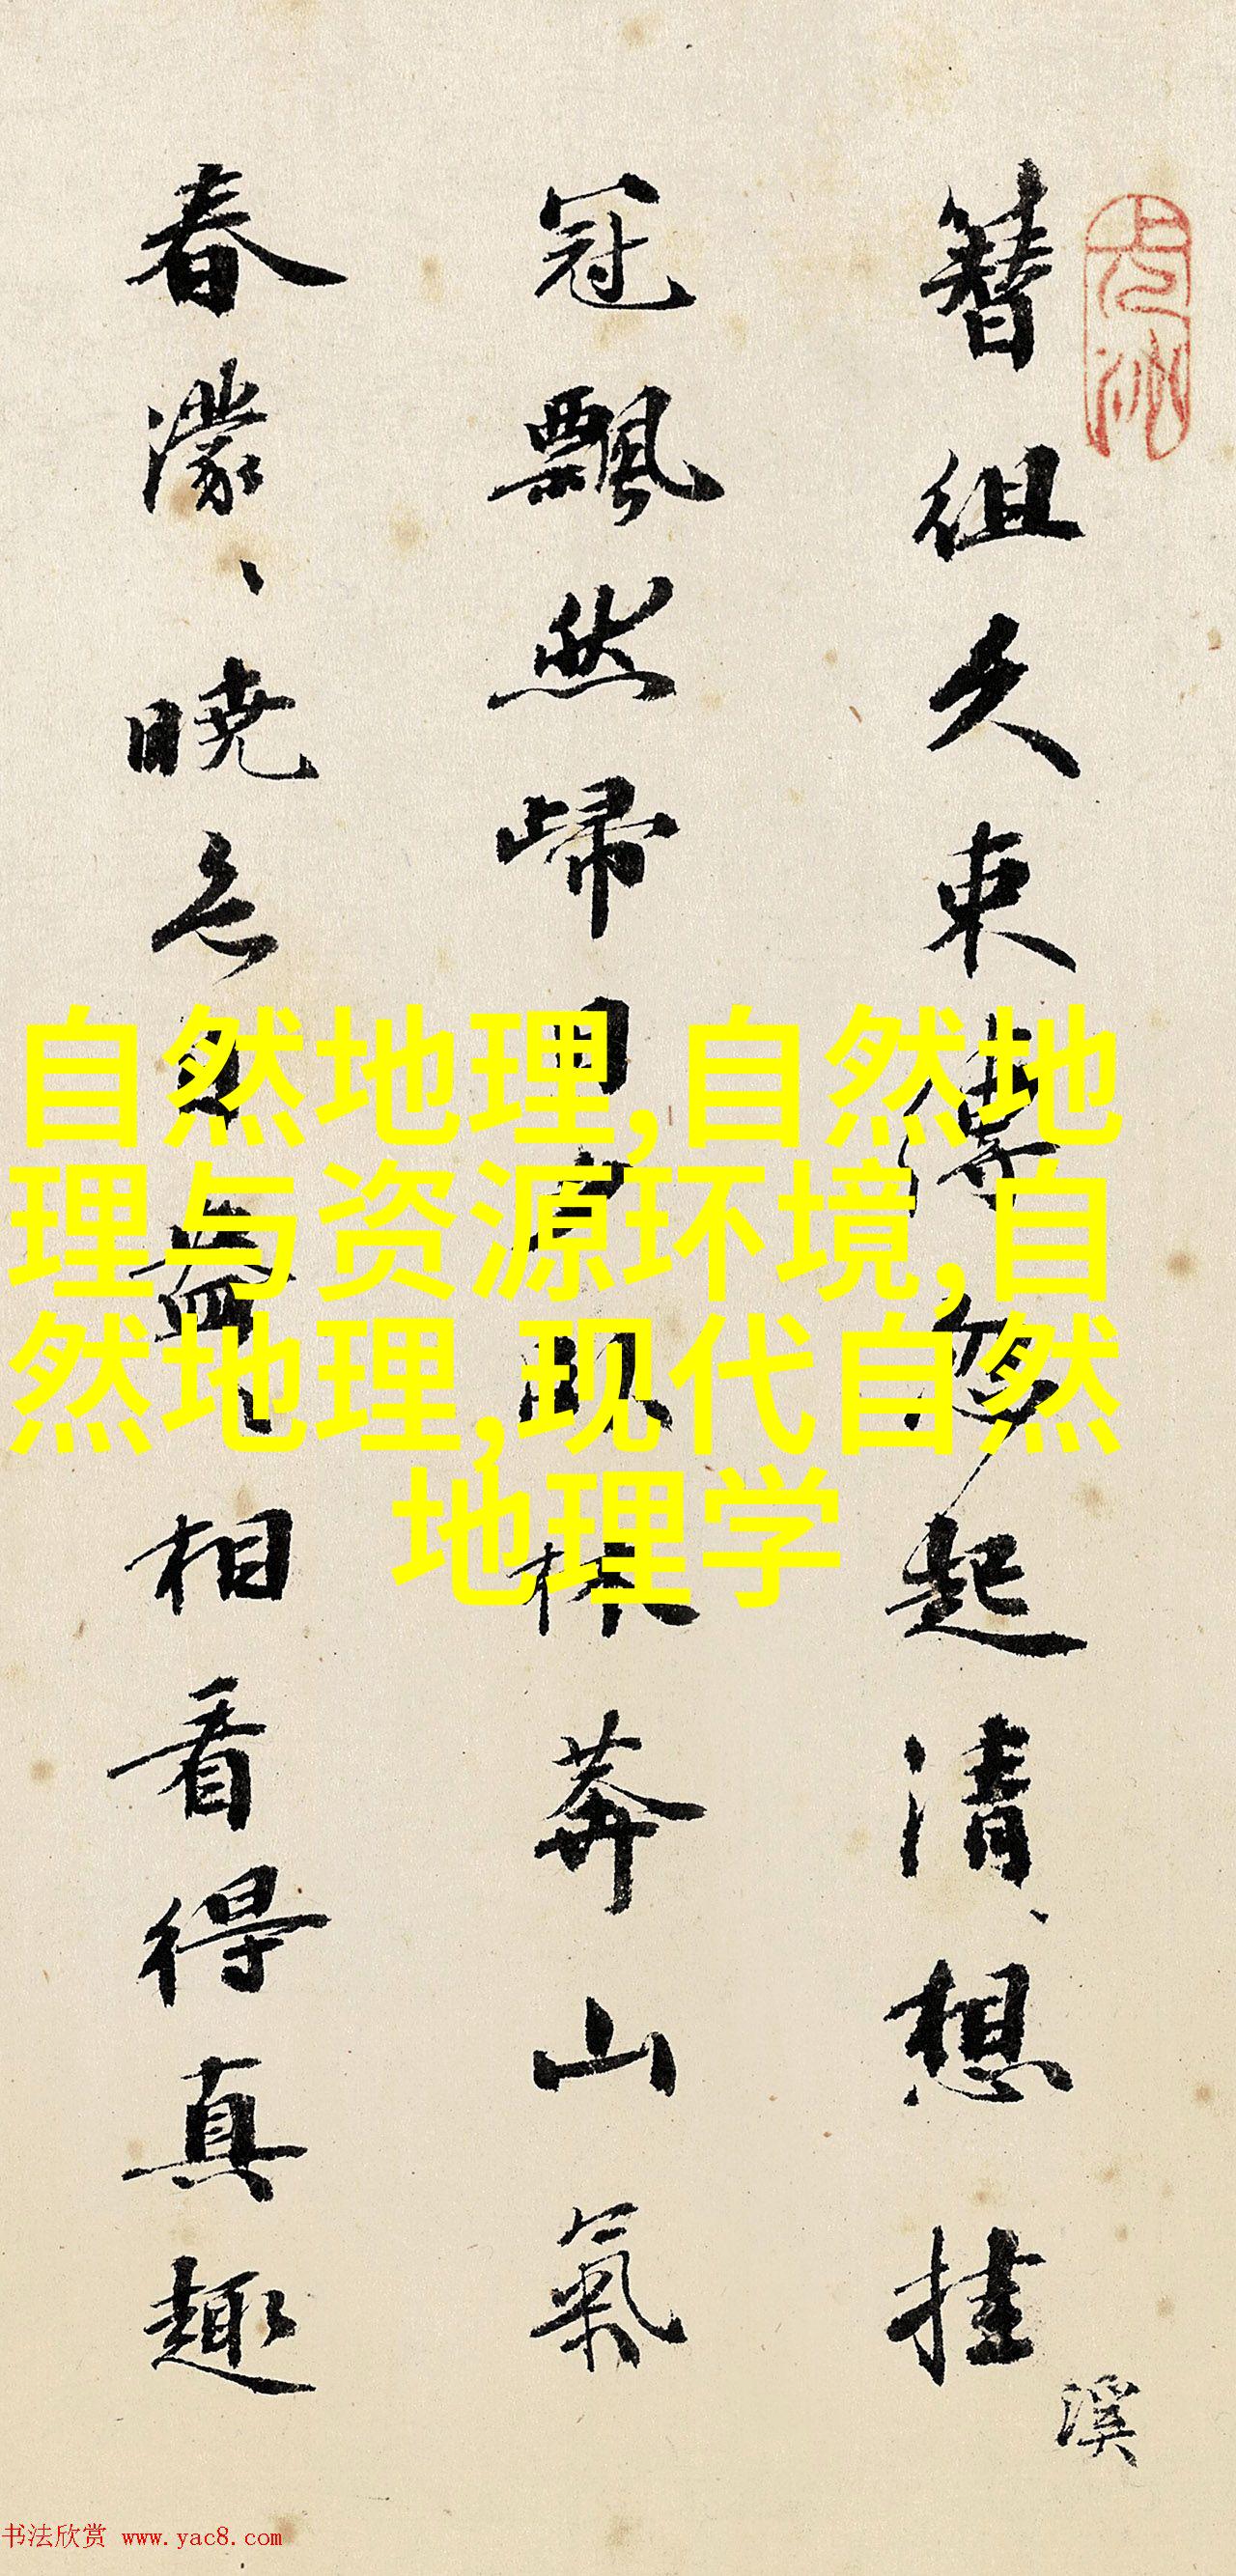 簪组久束缚忽起清想挂
冠飄然歸
林莽山氣
春濛濛曉色
相看得真趣
溪
自然地理,自然地
理与资源环境,自
然地理,现代自然
地理学
书法欣赏 www.yac8.com